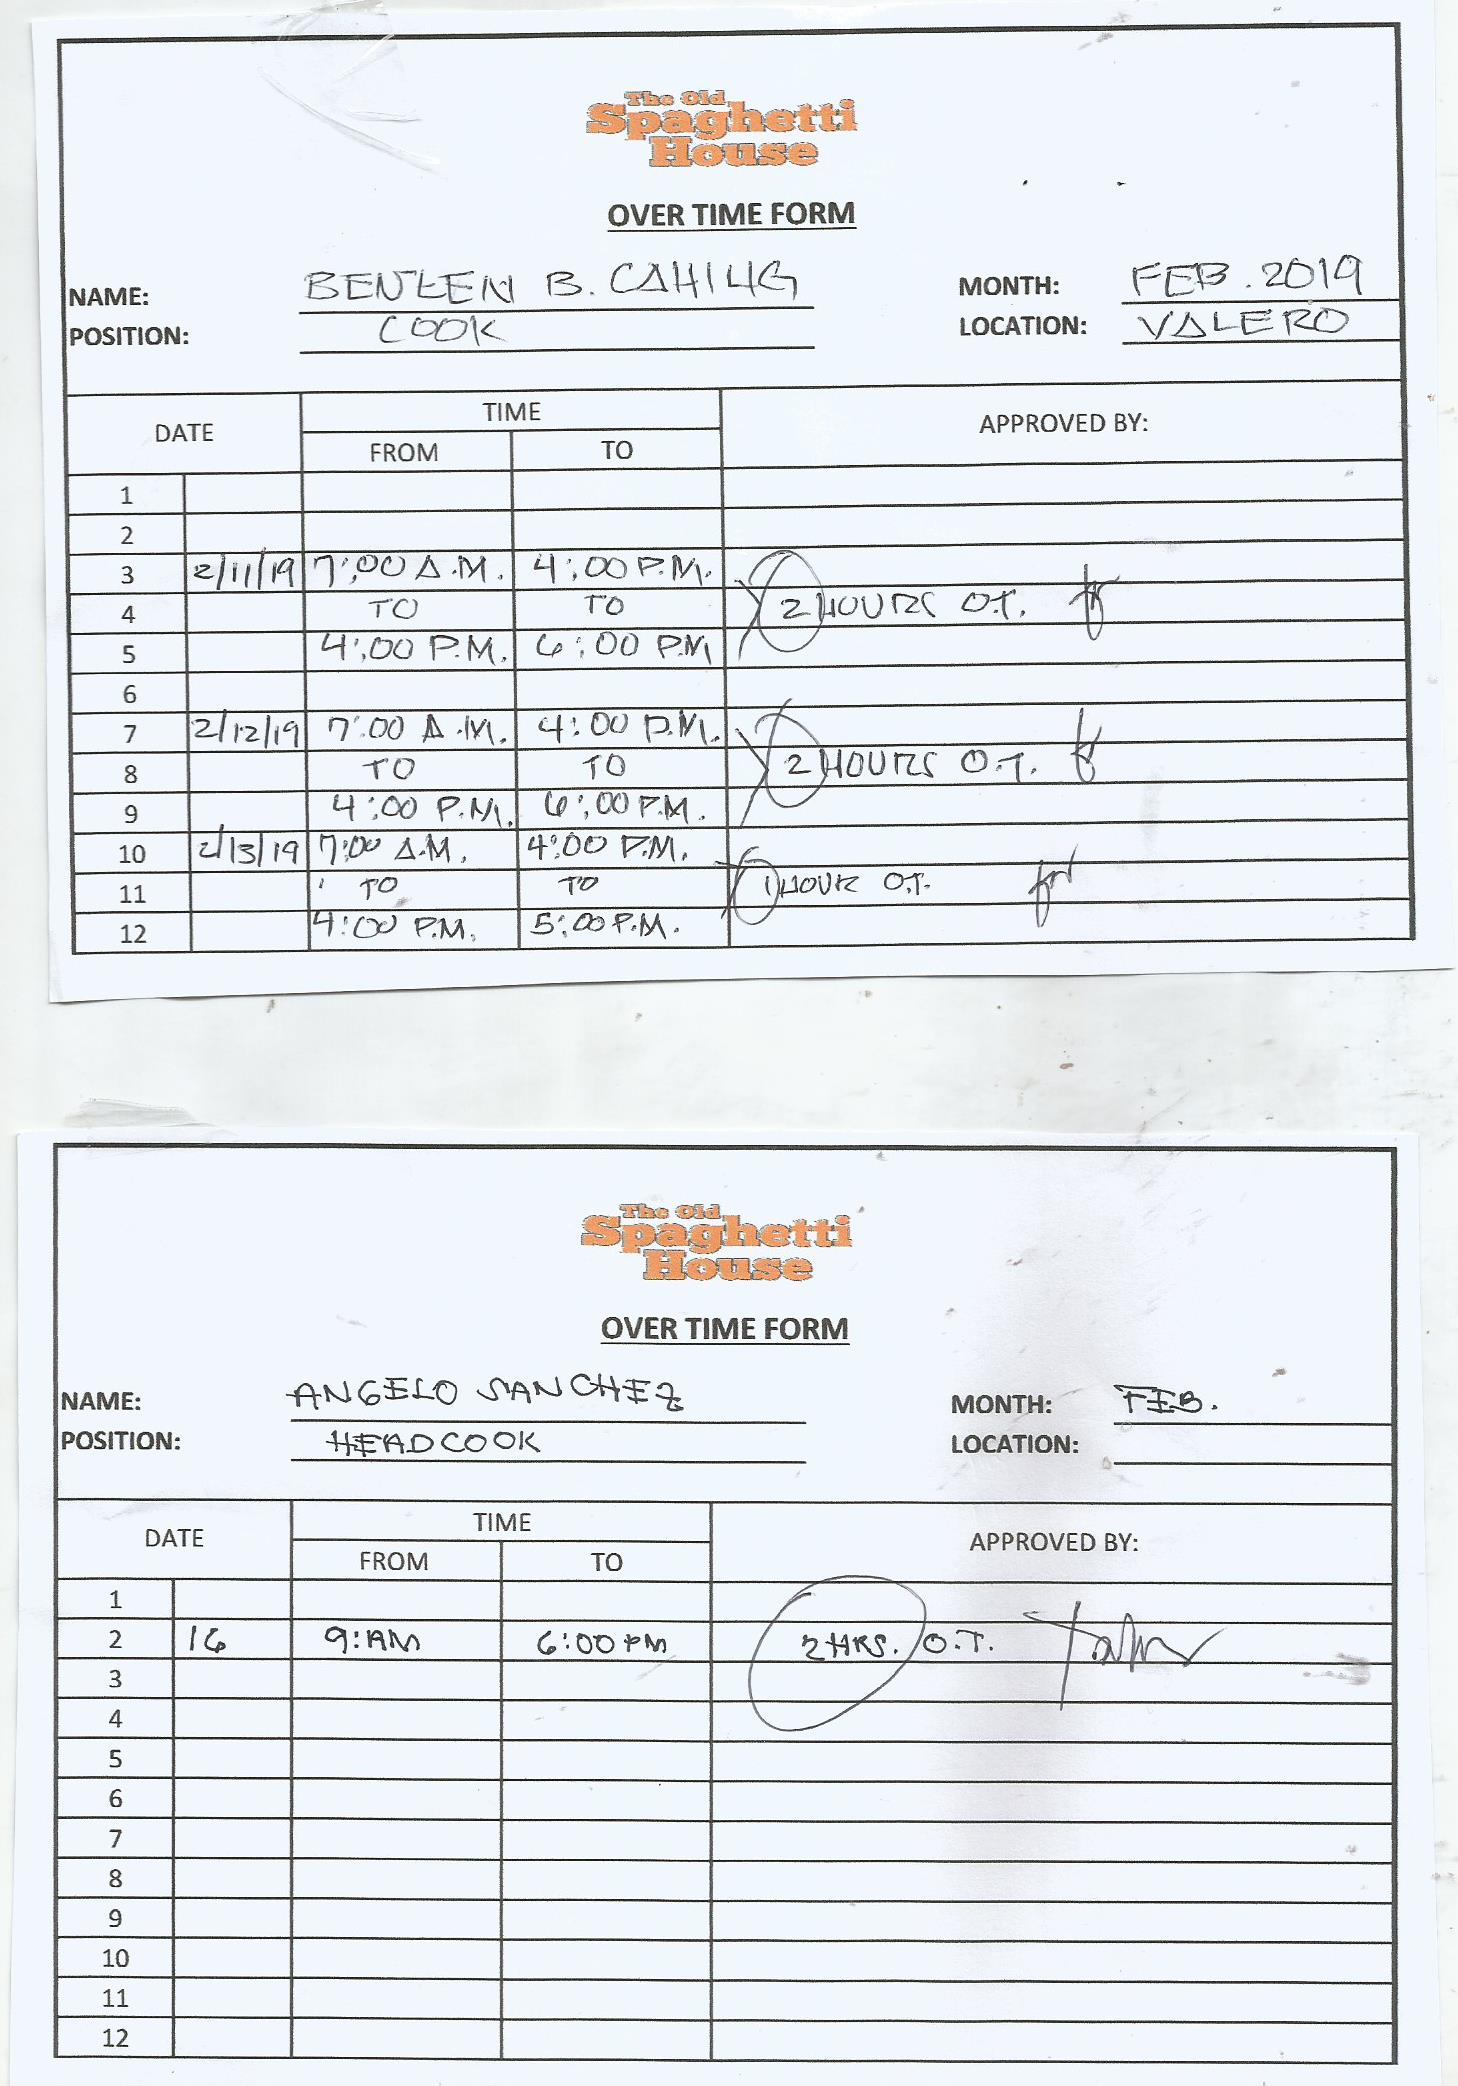 The Old
Spaghetti
House
OVER TIME FORM
NAME: BENLEN B. CAHILIG MONTH: FEB. 2019
POSITION: COOK LOCATION: VALERO
DATE TIME APPROVED BY:
FROM TO
1
2
3 2/11/19 7:00 A.M. 4:00 P.M.
4 TO TO 2 HOURS O.T.
5 4:00 P.M. 6:00 P.M
6
7 2/12/19 7:00 A.M. 4:00 P.M.
8 TO TO 2 HOURS O.T.
9 4:00 P.M. 6:00 P.M.
10 2/13/19 7:00 A.M. 4:00 P.M.
11 TO TO 1 HOUR O.T.
12 4:00 P.M. 5:00 P.M.
The Old
Spaghetti
House
OVER TIME FORM
NAME: ANGELO SANCHEZ MONTH: FEB.
POSITION: HEAD COOK LOCATION:
DATE TIME APPROVED BY:
FROM TO
1
2 16 9:AM 6:00 PM 2 HRS. O.T.
3
4
5
6
7
8
9
10
11
12